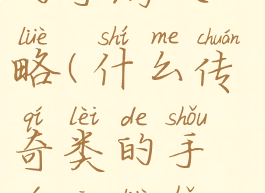 lüè shí me chuán
略(什么传
qí lèi de shǒu
奇类的手